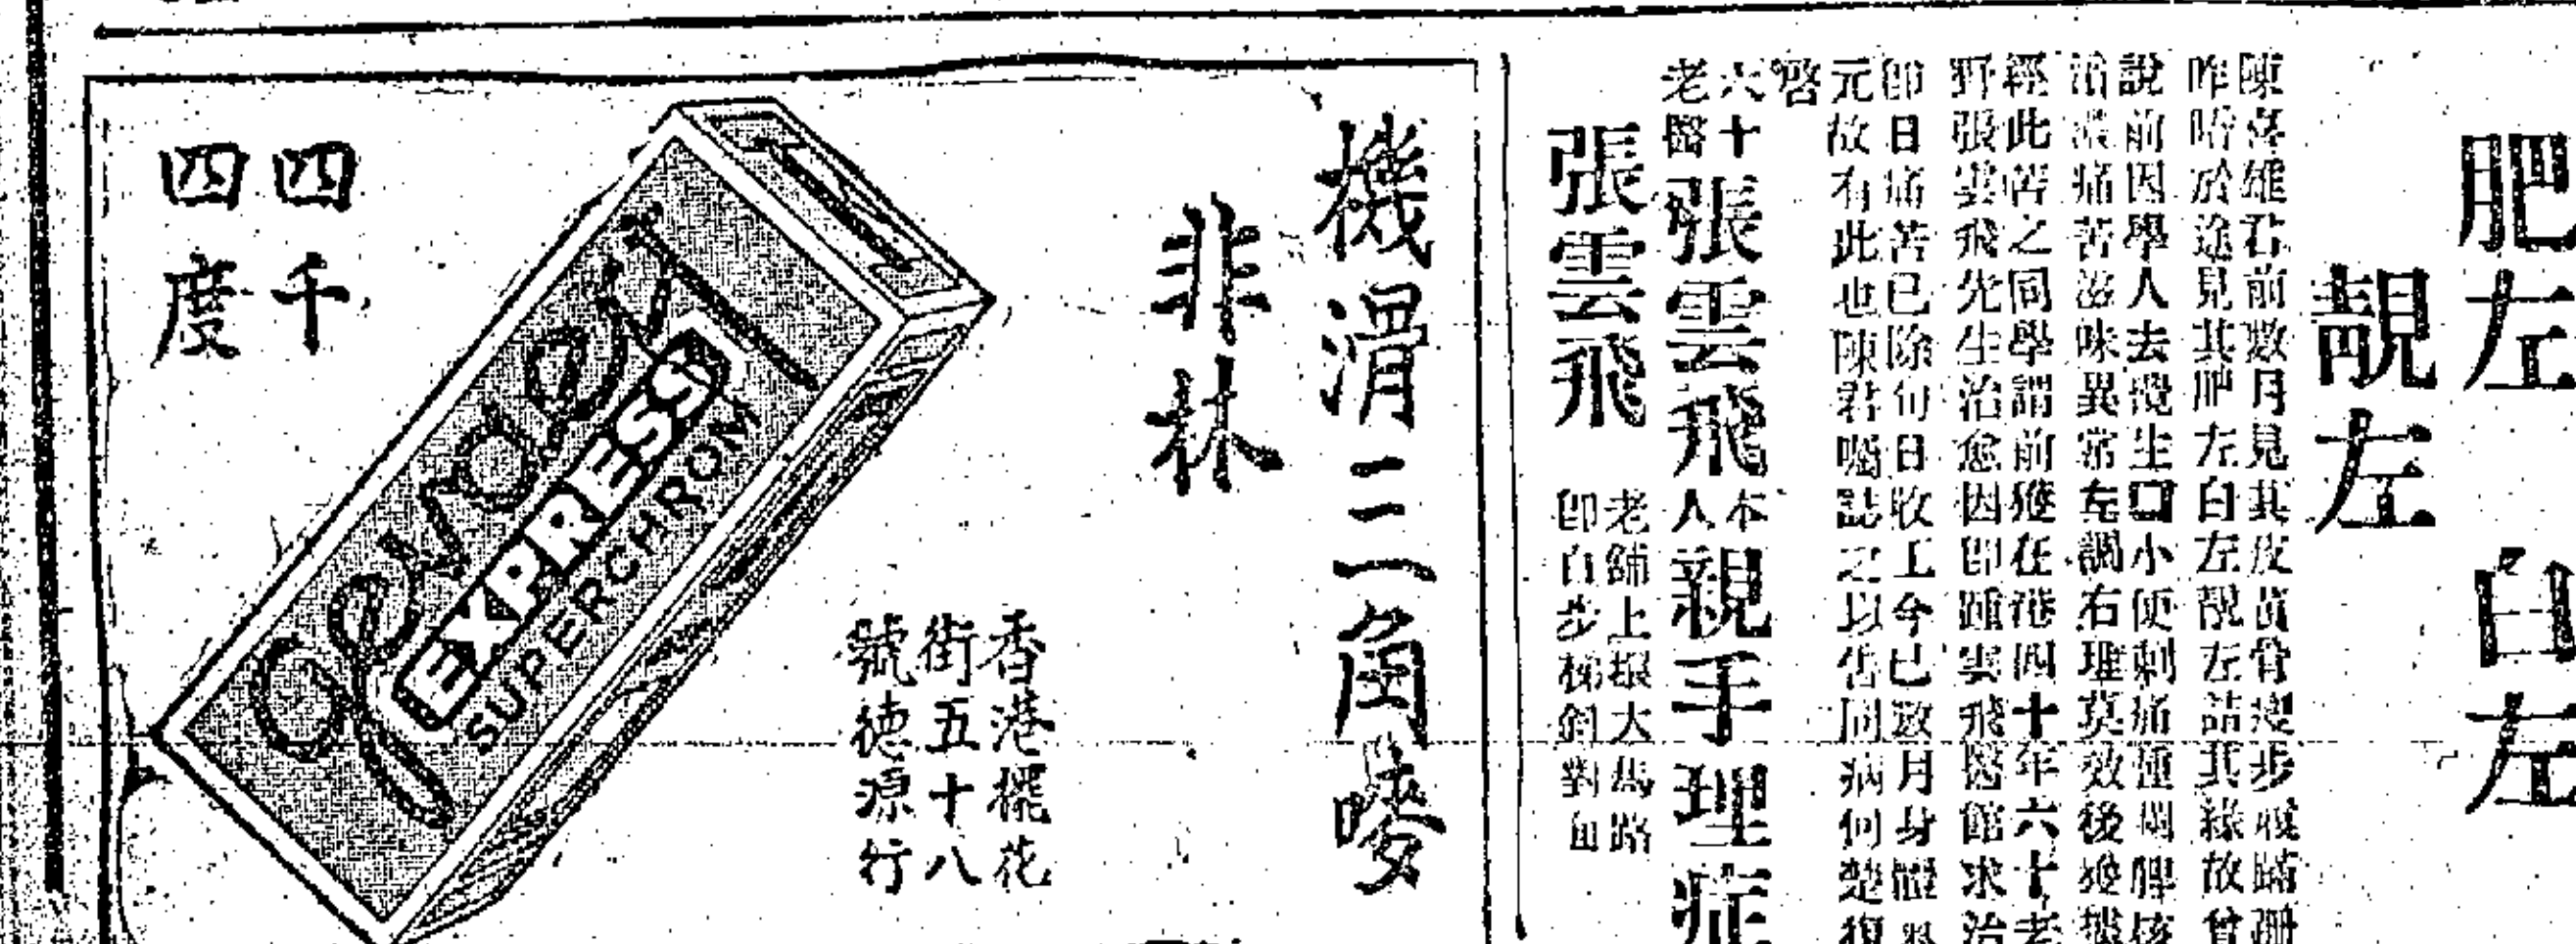 肥左 白左
靚左
陳喜雄君前數月見其皮黃骨瘦步履蹣跚
昨晤於途見其肥左白左靚左詰其緣故曾
說前因學人去攪生口小便刺痛
治濃痛苦滋味異常左調右理莫效後
經此苦之同學謂前在港四十年六十老
野張雲飛先生治愈因即踵雲飛醫館求治
即日痛苦已除旬日收工今已數月身體
元故有此也陳君囑誌之以告同病何楚復
啓
六十老醫張雲飛本人親手理症
張雲飛
老舖上環大馬路
即自步梯斜對面
機滑三角嘜
菲林
香港擺花
街五十八
號德源行
Gevaert
EXPRESS
SUPERCHROM
四千
四度